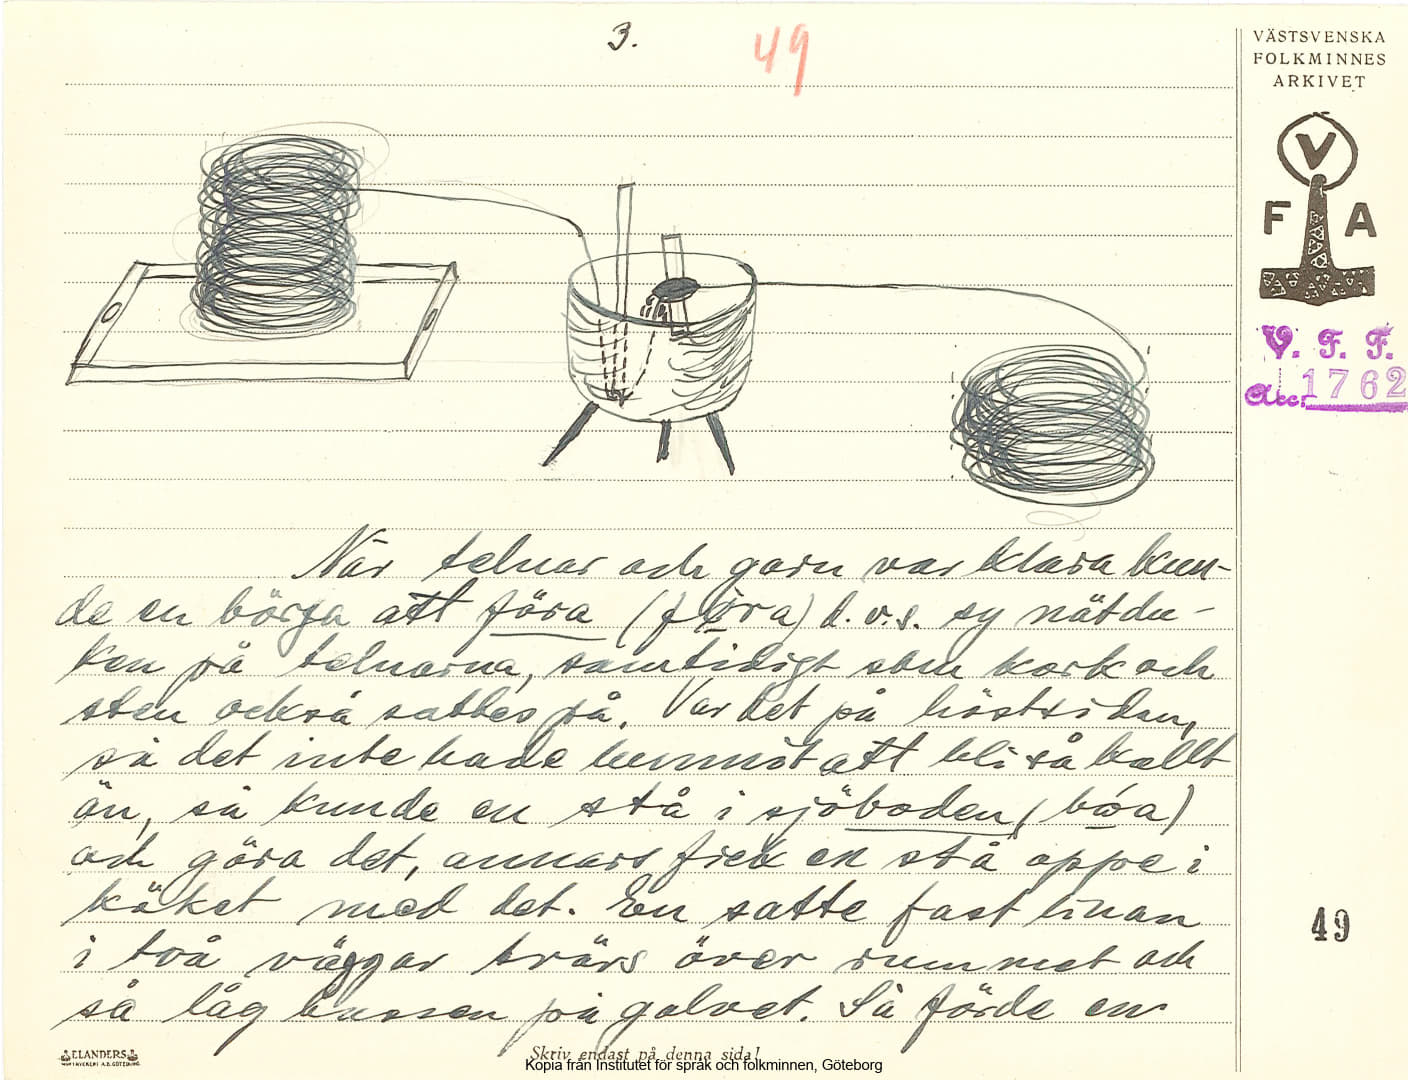 3.
49
VÄSTSVENSKA
FOLKMINNES
ARKIVET
V
F A
V. F. F.
Acc. 1762
När telnar och garn var klara kun-
de en börja att föra (föra) d.v.s. sy nätdu-
ken på telnarna, samtidigt som kork och
sten också sattes på. Var det på höstsidan,
så det inte hade hunnit att bli så kallt
än, så kunde en stå i sjöboden (bóa)
och göra det, annars fick en stå oppe i
köket med det. En satte fast linan
i två väggar tvärs över rummet och
så låg bussen på golvet. Så förde en
49
ELANDERS
Skriv endast på denna sida!
Kopia från Institutet för språk och folkminnen, Göteborg